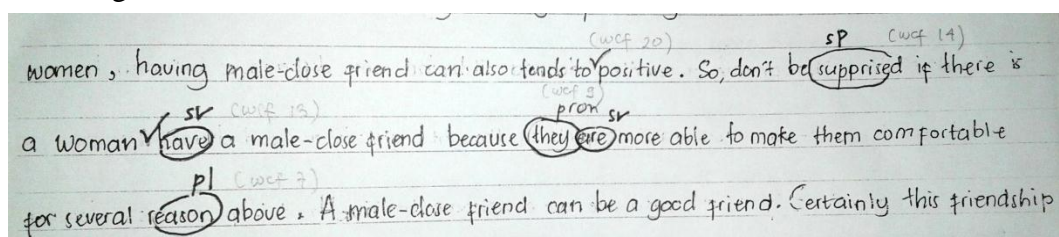 (wcf 20) sp (wcf 14)
women, having male-close friend can also tends to positive. So, don't be supprised if there is
sv (wcf 13) (wcf 9) pron sv
a woman have a male-close friend because they are more able to make them comfortable
pl (wcf 7)
for several reason above. A male-close friend can be a good friend. Certainly this friendship